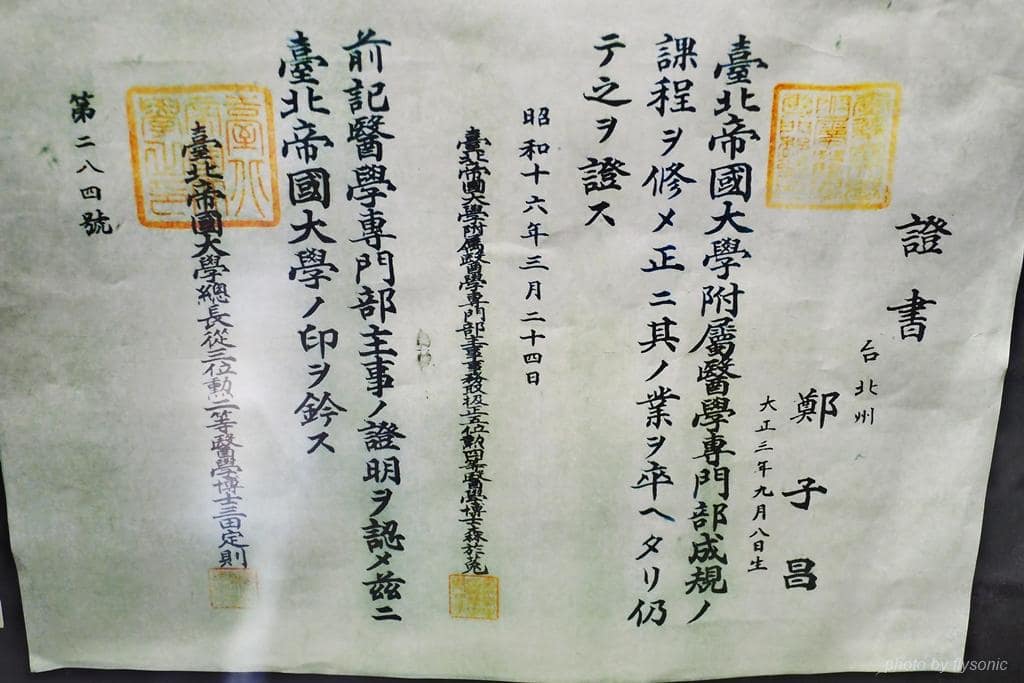 證書
台北州
鄭子昌
大正三年九月八日生
臺北帝國大學附属醫學專門部成規ノ
課程ヲ修メ正ニ其ノ業ヲ卒ヘタリ仍
テ之ヲ證ス
昭和十六年三月二十四日
臺北帝國大學附属醫學專門部主事事務取扱正五位勲四等醫學博士森於菟
前記醫學專門部主事ノ證明ヲ認メ茲ニ
臺北帝國大學ノ印ヲ鈐ス
臺北帝國大學總長從三位勲二等醫學博士三田定則
第二八四號
photo by flysonic